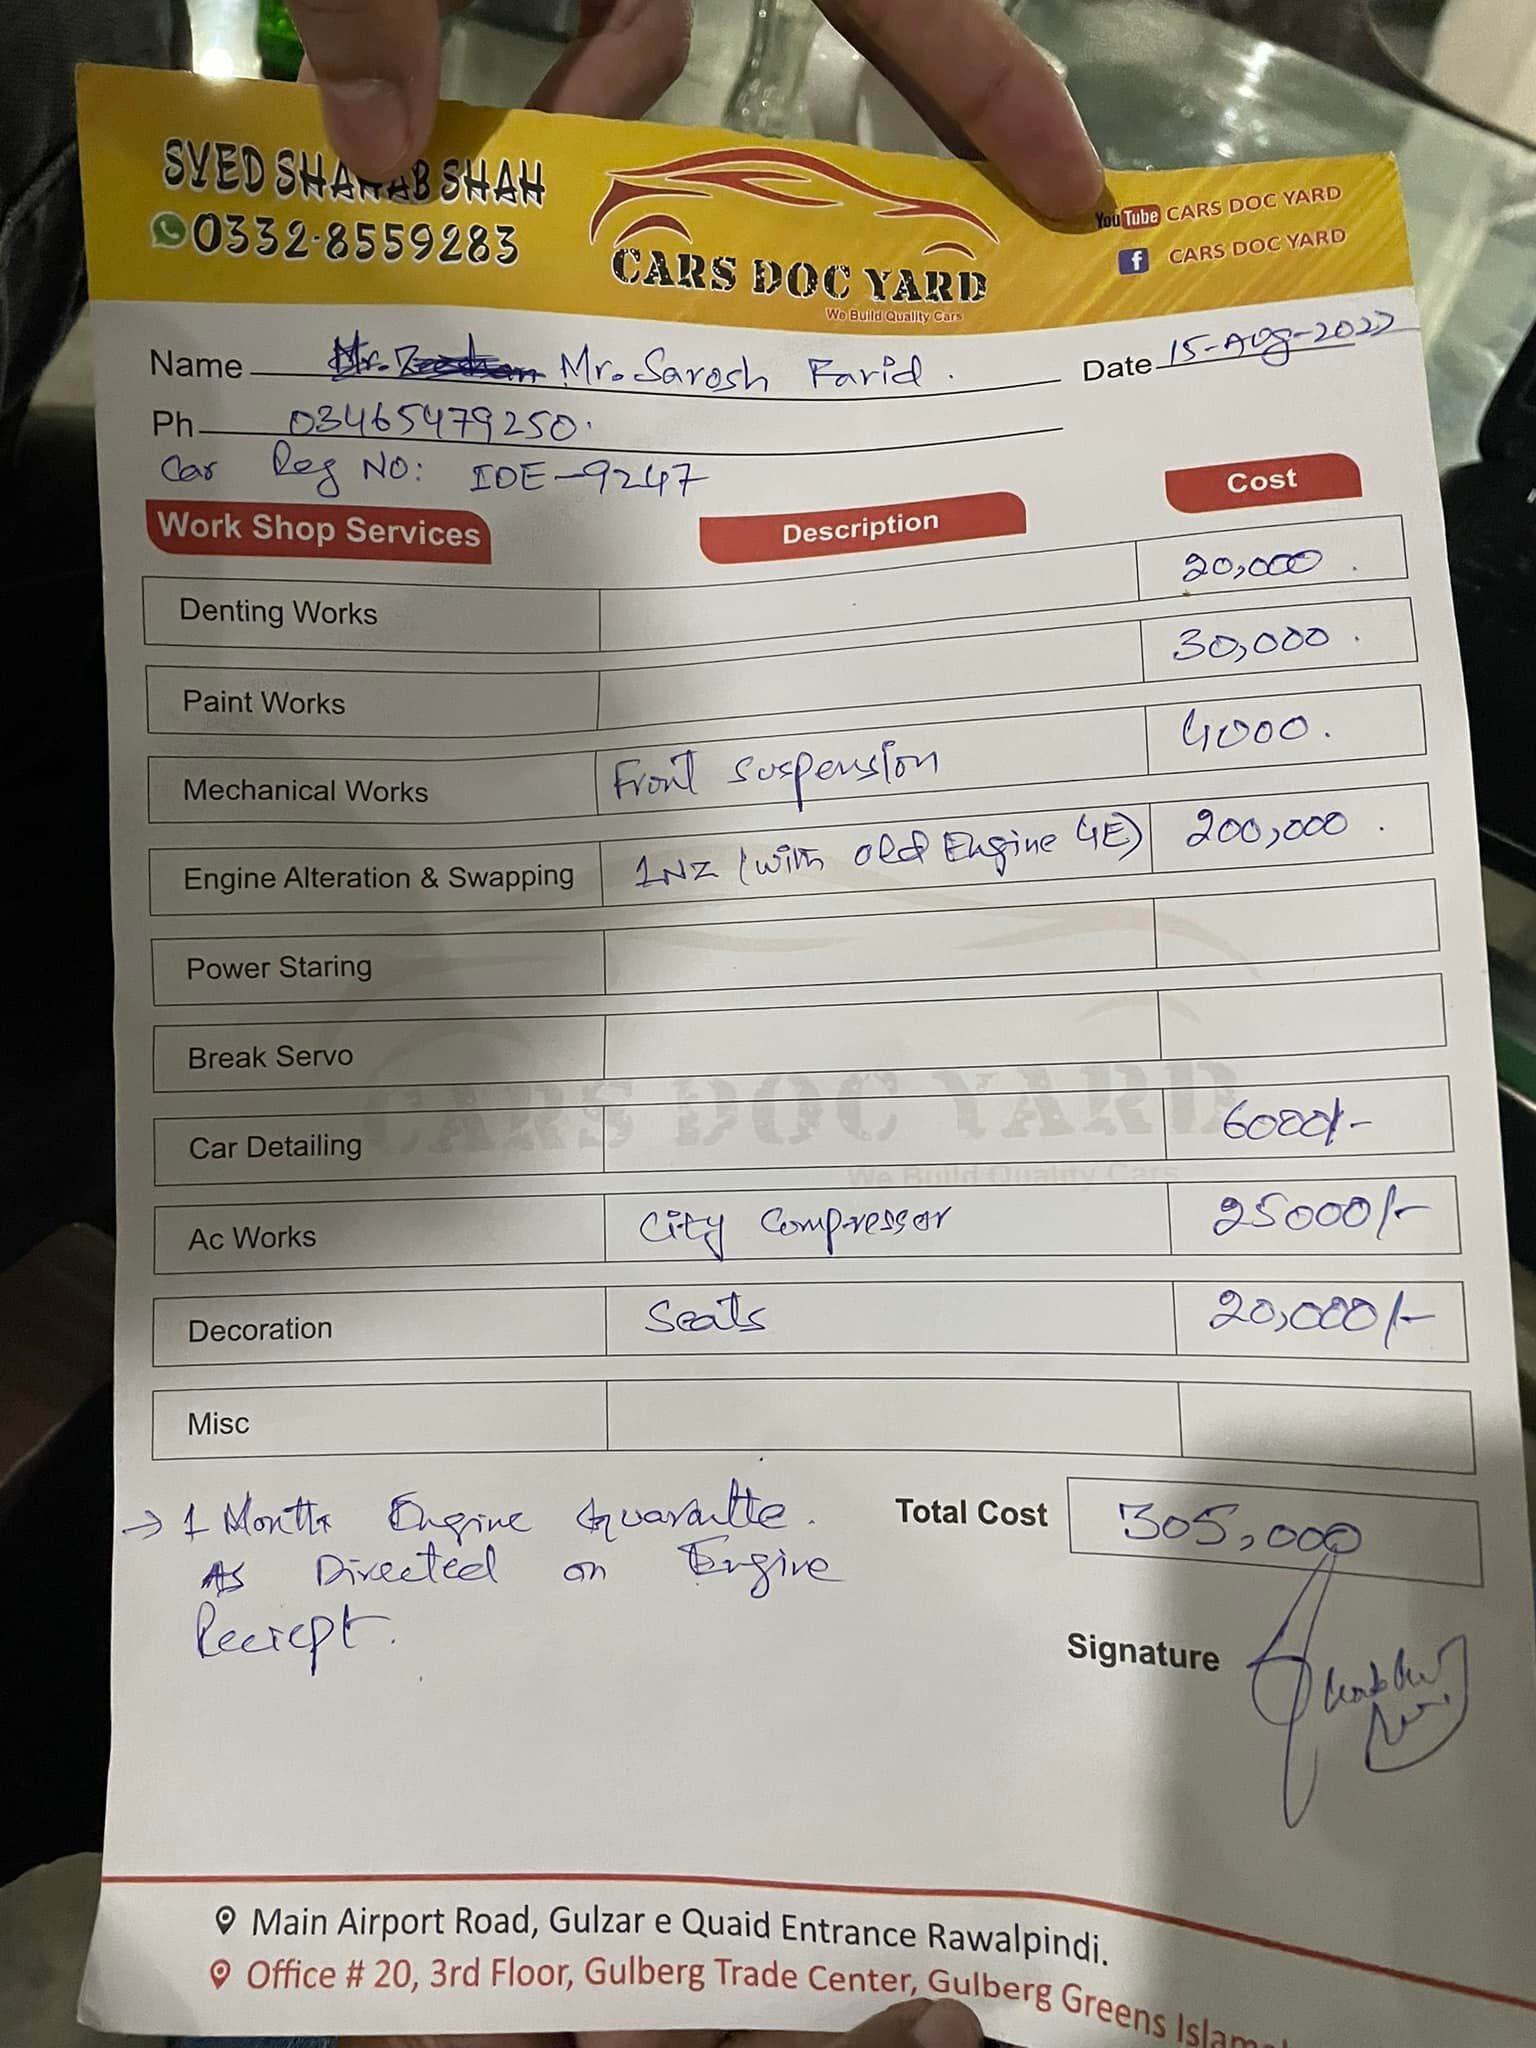 SYED SHAHAB SHAH
0332-8559283
CARS DOC YARD
We Build Quality Cars
YouTube CARS DOC YARD
f CARS DOC YARD
Name Mr. Sarosh Farid.
Date 15-Aug-2022
Ph 03465479250.
Car Reg NO: IDE-9247
Work Shop Services Description Cost
Denting Works 20,000.
Paint Works 30,000.
Mechanical Works Front Suspension 4000.
Engine Alteration & Swapping 1NZ (with old Engine 4E) 200,000.
Power Staring
Break Servo
Car Detailing 6000/-
Ac Works City Compressor 25000/-
Decoration Seats 20,000/-
Misc
CARS DOC YARD
We Build Quality Cars
Total Cost 305,000
→ 1 Month Engine Guarantte.
As Directed on Engine
Reciept.
Signature
Main Airport Road, Gulzar e Quaid Entrance Rawalpindi.
Office # 20, 3rd Floor, Gulberg Trade Center, Gulberg Greens